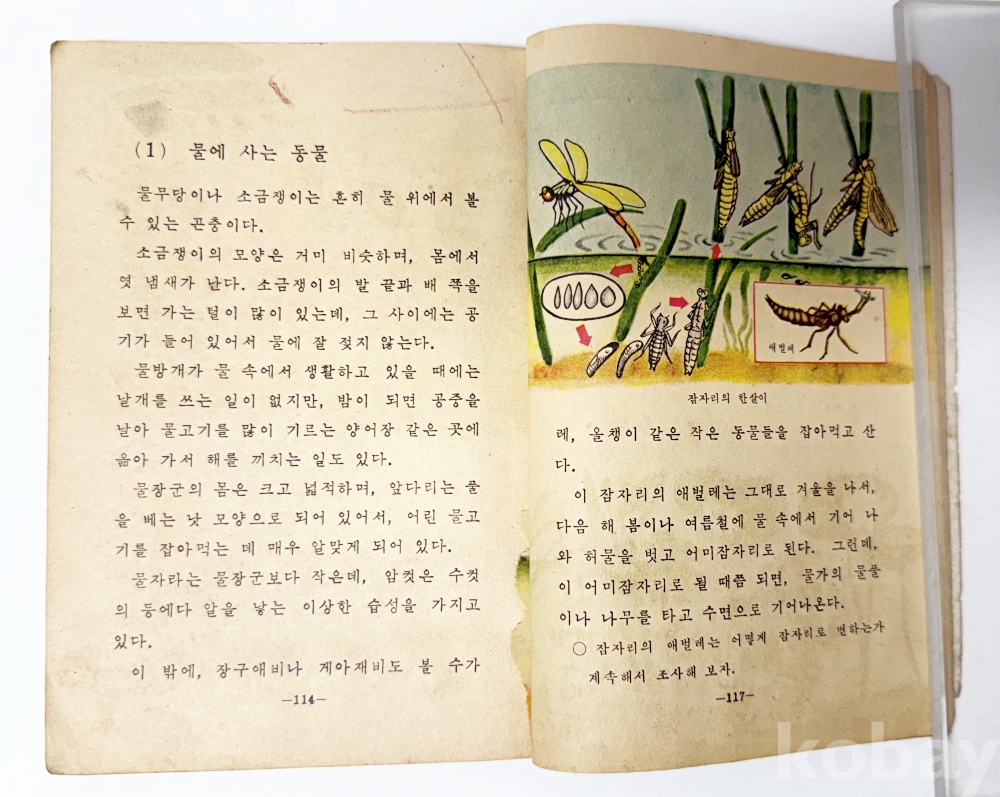 (1) 물에 사는 동물
물무당이나 소금쟁이는 흔히 물 위에서 볼
수 있는 곤충이다.
소금쟁이의 모양은 거미 비슷하며, 몸에서
엿 냄새가 난다. 소금쟁이의 발 끝과 배 쪽을
보면 가는 털이 많이 있는데, 그 사이에는 공
기가 들어 있어서 물에 잘 젖지 않는다.
물방개가 물 속에서 생활하고 있을 때에는
날개를 쓰는 일이 없지만, 밤이 되면 공중을
날아 물고기를 많이 기르는 양어장 같은 곳에
옮아 가서 해를 끼치는 일도 있다.
물장군의 몸은 크고 넓적하며, 앞다리는 풀
을 베는 낫 모양으로 되어 있어서, 어린 물고
기를 잡아먹는 데 매우 알맞게 되어 있다.
물자라는 물장군보다 작은데, 암컷은 수컷
의 등에다 알을 낳는 이상한 습성을 가지고
있다.
이 밖에, 장구애비나 게아재비도 볼 수가
—114—
애벌레
잠자리의 한살이
레, 올챙이 같은 작은 동물들을 잡아먹고 산
다.
이 잠자리의 애벌레는 그대로 겨울을 나서,
다음 해 봄이나 여름철에 물 속에서 기어 나
와 허물을 벗고 어미잠자리로 된다. 그런데,
이 어미잠자리로 될 때쯤 되면, 물가의 물풀
이나 나무를 타고 수면으로 기어나온다.
○ 잠자리의 애벌레는 어떻게 잠자리로 변하는가
계속해서 조사해 보자.
—117—
kobay